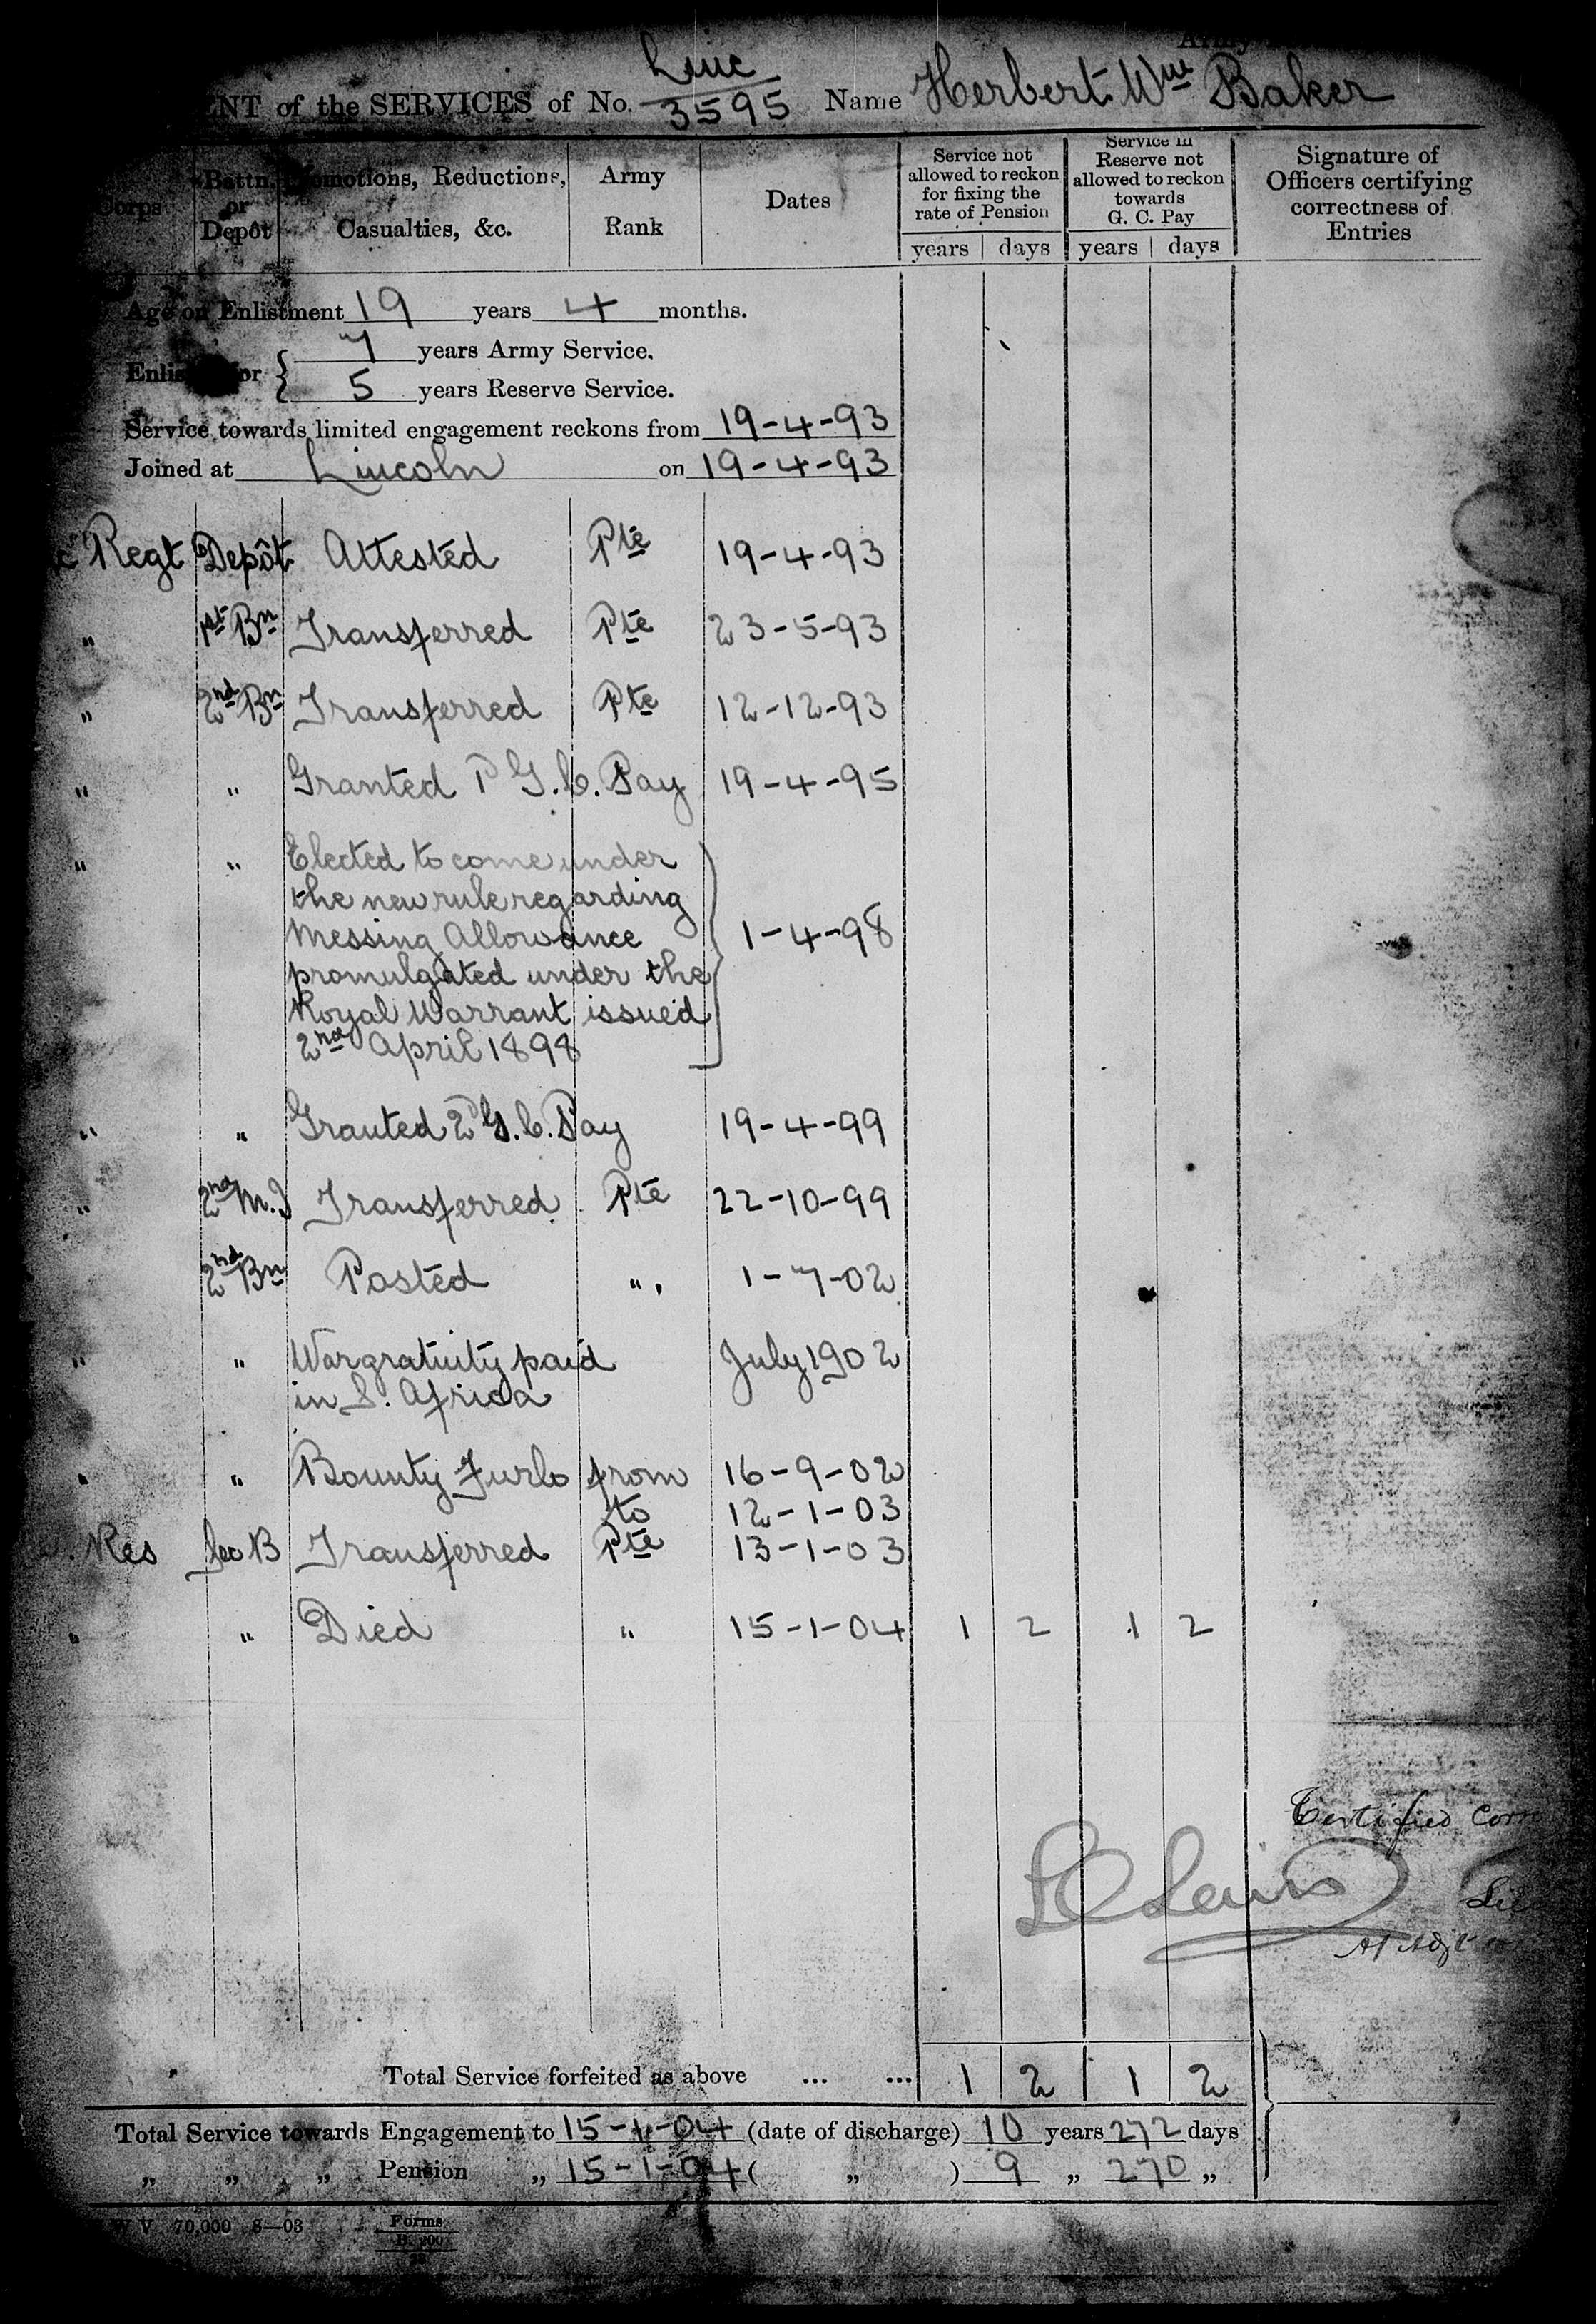 Army
Linc
ENT of the SERVICES of No. 3595 Name Herbert Wm Baker
Corps
Battn. or Depôt
Promotions, Reductions, Casualties, &c.
Army Rank
Dates
Service not allowed to reckon for fixing the rate of Pension
years days
Service in Reserve not allowed to reckon towards G. C. Pay
years days
Signature of Officers certifying correctness of Entries
Age on Enlistment 19 years 4 months.
7 years Army Service.
Enlis or {
5 years Reserve Service.
Service towards limited engagement reckons from 19-4-93
Joined at Lincoln on 19-4-93
c Regt Depôt Attested Pte 19-4-93
" 1st Bn Transferred Pte 23-5-93
" 2nd Bn Transferred Pte 12-12-93
" " Granted 1d G.C. Pay 19-4-95
" " Elected to come under
the new rule regarding
Messing Allowance 1-4-98
promulgated under the
Royal Warrant issued
2nd April 1898
" " Granted 2d G.C. Pay 19-4-99
" 2nd M.I Transferred Pte 22-10-99
2nd Bn Posted " 1-7-02
" " War gratuity paid July 1902
in S. Africa
" " Bounty Furlo from 16-9-02
to 12-1-03
Res Sec B Transferred Pte 13-1-03
" " Died " 15-1-04 1 2 1 2
Certified Corre
Lewis Lieu
Adjt
Total Service forfeited as above ... ... 1 2 1 2
Total Service towards Engagement to 15-1-04 (date of discharge) 10 years 272 days
„ „ „ Pension „ 15-1-04 ( „ ) 9 „ 270 „
W V 70,000 8—03 Forms
B. 200